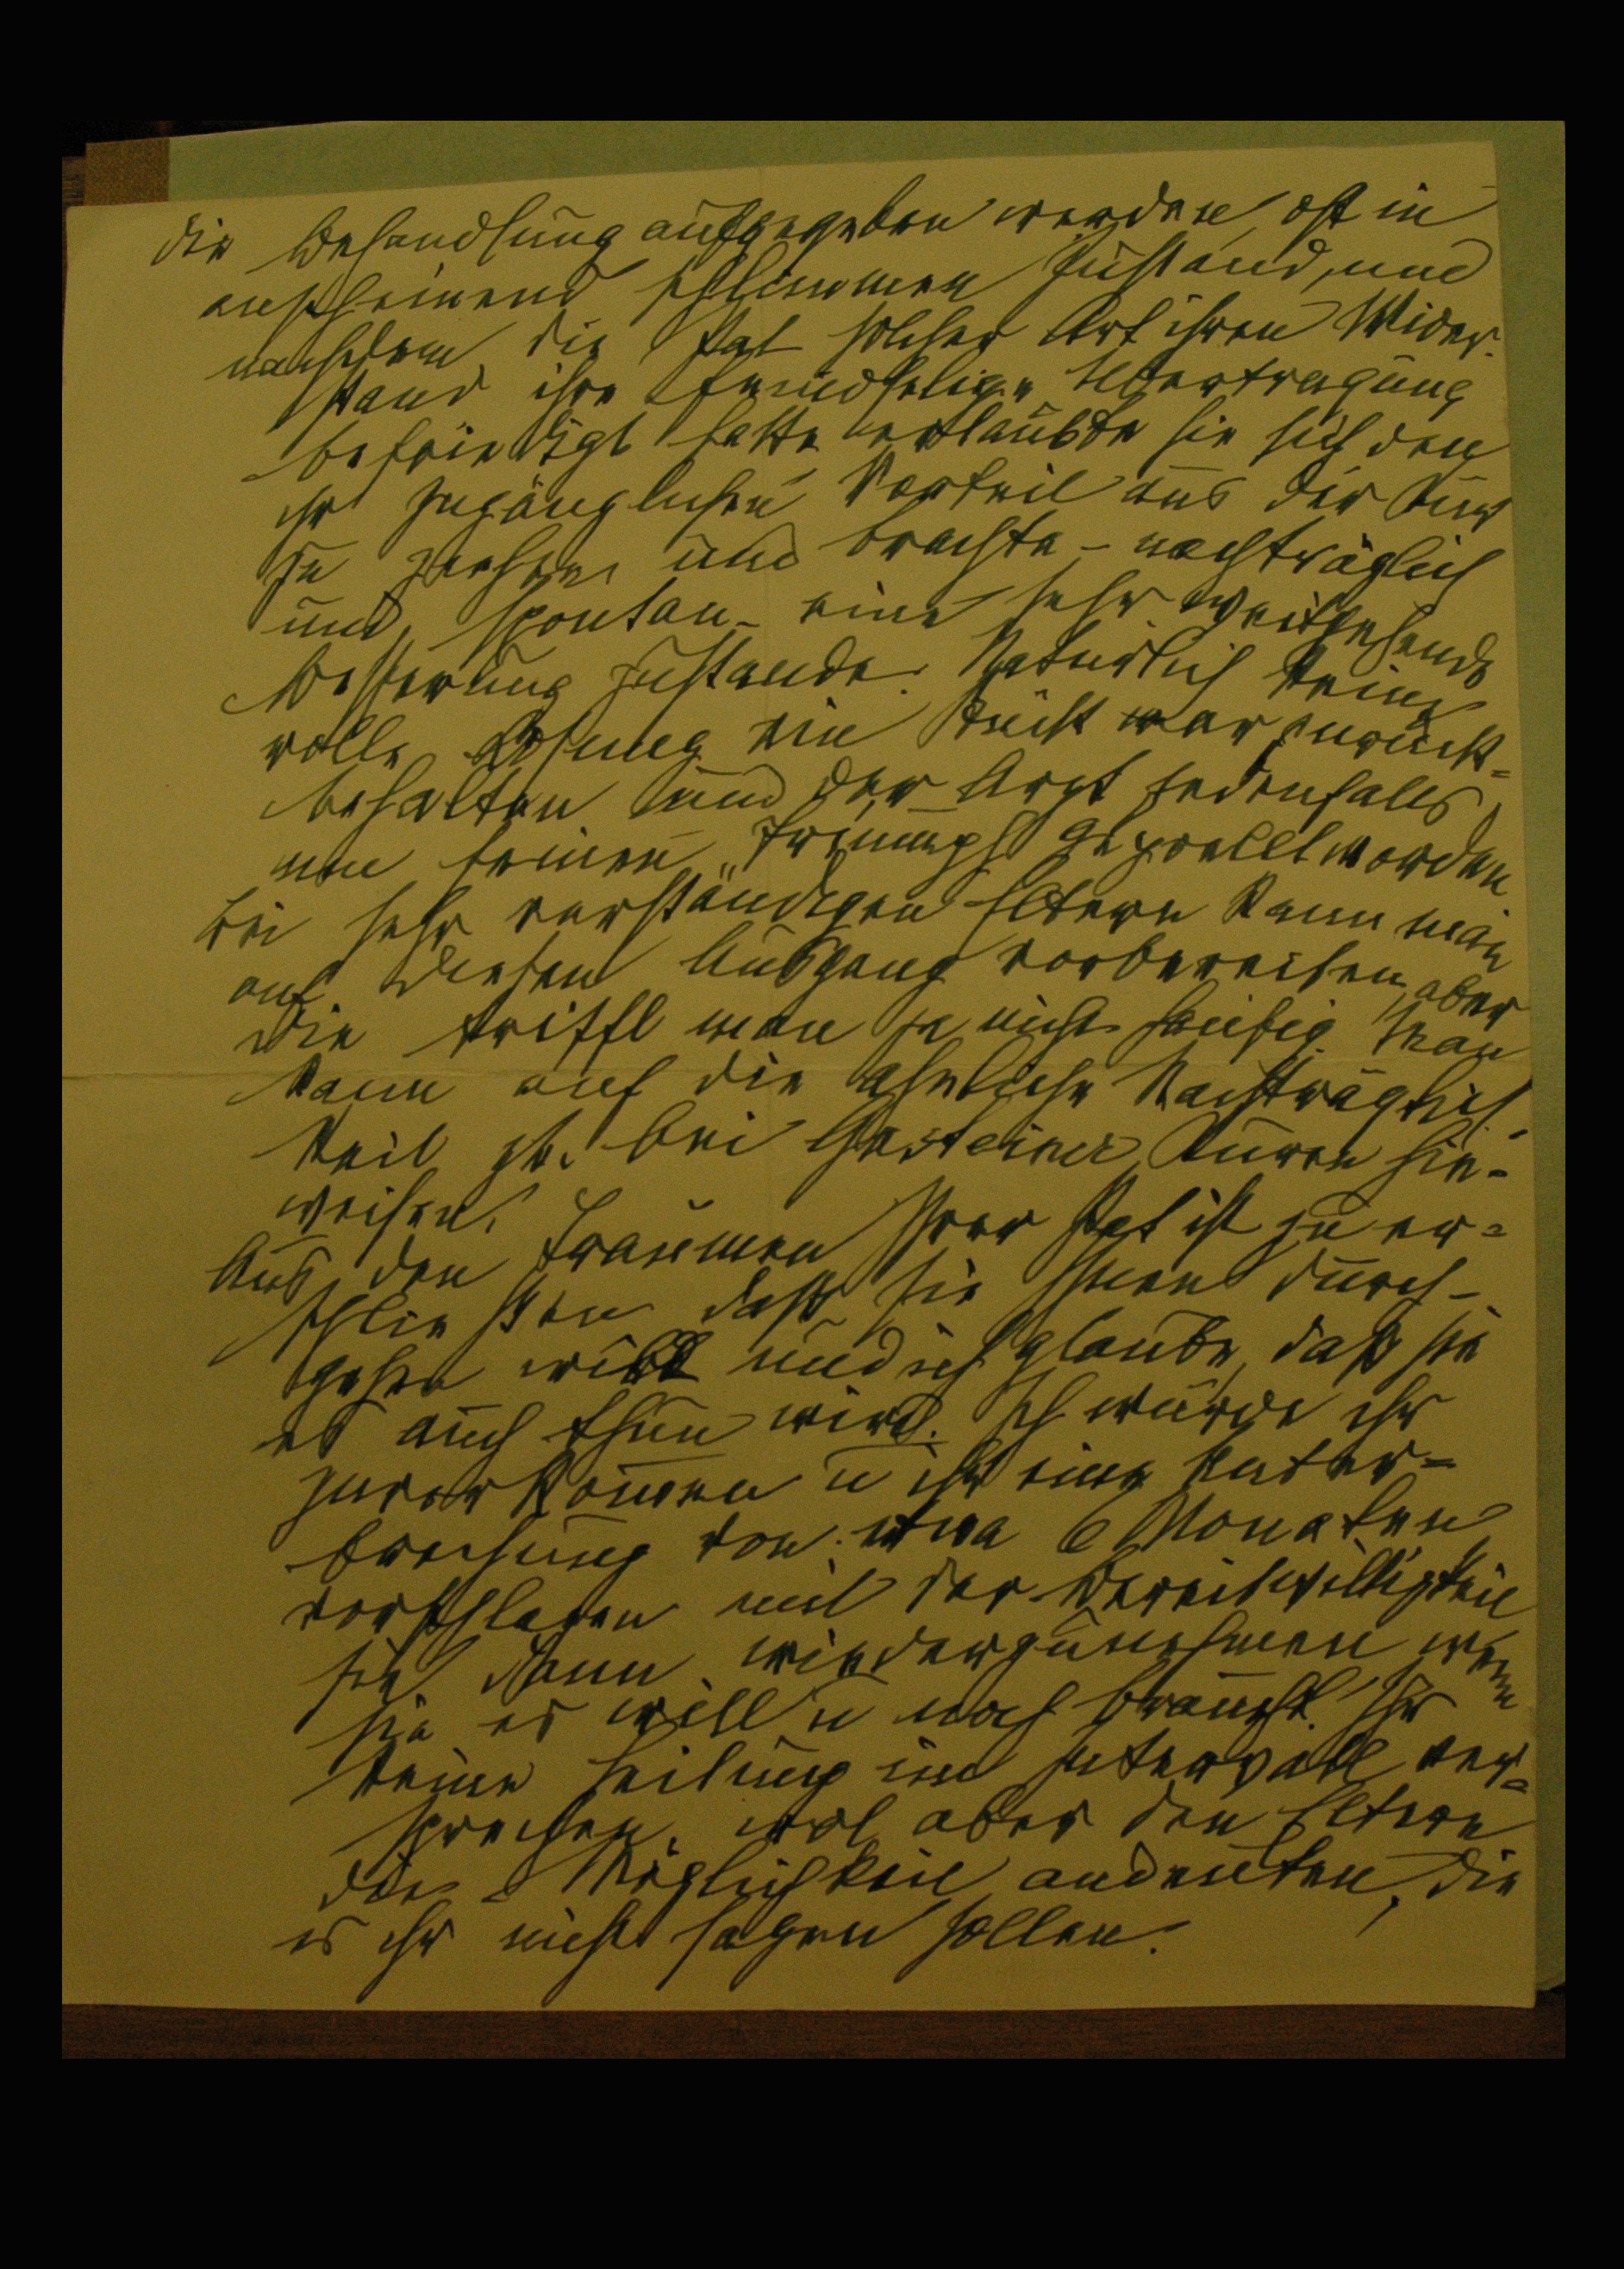 die Behandlung aufgegeben werden, oft in
anscheinend schlimmem Zustand, und
nachdem die Pat solcher Art ihren Wider-
stand ihre feindselige Übertragung
befriedigt hatte erlaubte sie sich den
ihr zugänglichen Vorteil aus der Kur
zu ziehen und brachte – nachträglich
und spontan – eine sehr weitgehende
Besserung zustande. Natürlich keine
volle Lösung, ein Stück war zurück=
behalten und der Arzt jedenfalls
um seinen „Triumph geprellt worden.
Bei sehr verständigen Eltern kann man
auf diesen Ausgang vorbereiten, aber
die trifft man ja nicht häufig. Man
kann auf die ähnliche Nachträglich-
keit zb. bei Gasteiner Kuren hin-
weisen.
Aus den Träumen Ihrer Pat ist zu er=
schließen dass sie Ihnen durch-
gehen will und ich glaube, daß sie
es auch thun wird. Ich würde ihr
zuvorkommen u ihr eine Unter=
brechung von etwa 6 Monaten
vorschlagen mit der Bereitwilligkeit
sie dann wiederzunehmen wenn
sie es will u noch braucht. Ihr
keine Heilung im Intervall ver=
sprechen, wol aber den Eltern
die Möglichkeit andeuten, die
es ihr nicht sagen sollen.